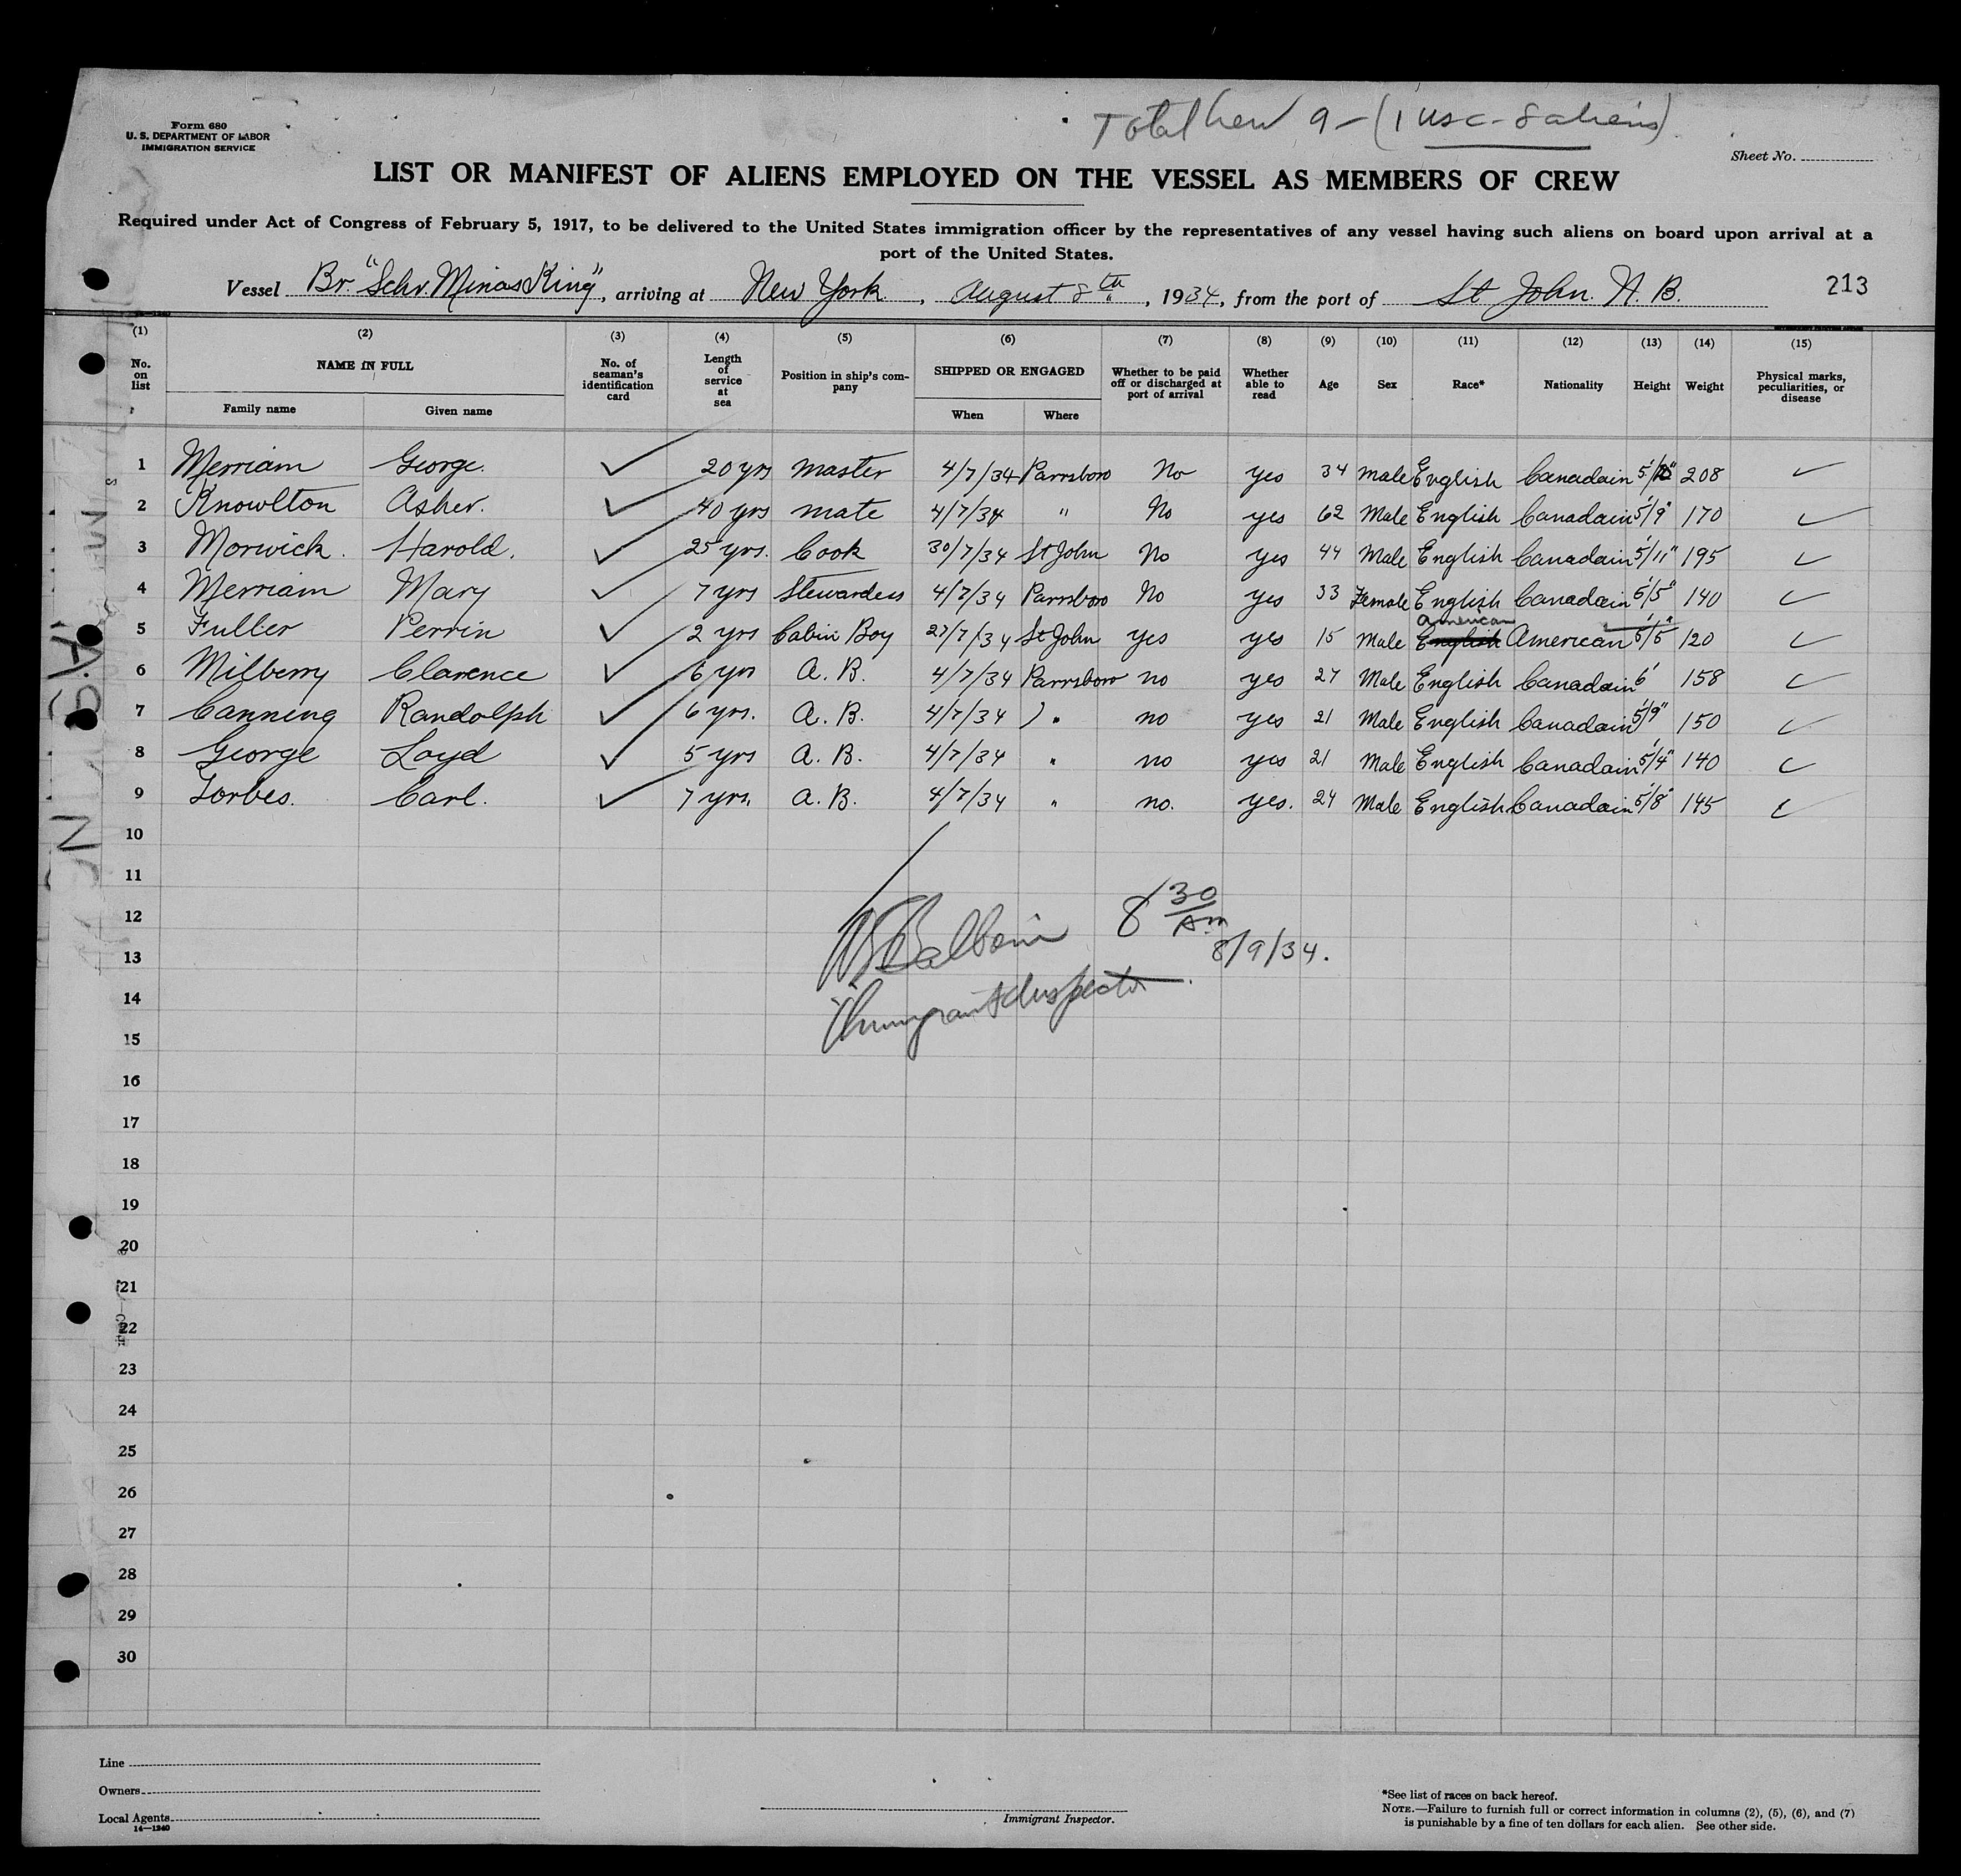 Total Crew 9 - (1 USC - 8 aliens)
Form 680
U. S. DEPARTMENT OF LABOR
IMMIGRATION SERVICE
Sheet No.
LIST OR MANIFEST OF ALIENS EMPLOYED ON THE VESSEL AS MEMBERS OF CREW
Required under Act of Congress of February 5, 1917, to be delivered to the United States immigration officer by the representatives of any vessel having such aliens on board upon arrival at a
port of the United States.
Vessel Br. "Schr. Minas King", arriving at New York, August 8th, 1934, from the port of St John. N. B. 213
(1) (2) (3) (4) (5) (6) (7) (8) (9) (10) (11) (12) (13) (14) (15)
No. on list NAME IN FULL Family name Given name No. of seaman's identification card Length of service at sea Position in ship's company SHIPPED OR ENGAGED When Where Whether to be paid off or discharged at port of arrival Whether able to read Age Sex Race* Nationality Height Weight Physical marks, peculiarities, or disease
1 Merriam George. ✓ 20 yrs master 4/7/34 Parrsboro No yes 34 Male English Canadain 208 ✓
2 Knowlton Asher. ✓ 40 yrs mate 4/7/34 " No yes 62 Male English Canadain 5'/9" 170 ✓
3 Morwick. Harold. ✓ 25 yrs. Cook 30/7/34 St John No yes 44 Male English Canadain 5'/11" 195 ✓
4 Merriam Mary ✓ 7 yrs Stewardess 4/7/34 Parrsboro No yes 33 Female English Canadain 5'/5" 140 ✓
5 Fuller Perrin ✓ 2 yrs Cabin Boy 27/7/34 St John yes yes 15 Male English American American 5'/5" 120 ✓
6 Milberry Clarence ✓ 6 yrs A. B. 4/7/34 Parrsboro no yes 27 Male English Canadain 6' 158 ✓
7 Canning Randolph ✓ 6 yrs. A. B. 4/7/34 " no yes 21 Male English Canadain 5'/9" 150 ✓
8 George Loyd ✓ 5 yrs A. B. 4/7/34 " no yes 21 Male English Canadain 5'/4" 140 ✓
9 Forbes. Carl. ✓ 7 yrs. A. B. 4/7/34 " no. yes. 24 Male English Canadain 5'/8" 145 ✓
10
11
12
8 30/AM
13
8/9/34.
14
Immigrant Inspector.
15
16
17
18
19
20
21
22
23
24
25
26
27
28
29
30
Line
Owners
Local Agents
14—1240
Immigrant Inspector.
*See list of races on back hereof.
NOTE.—Failure to furnish full or correct information in columns (2), (5), (6), and (7)
is punishable by a fine of ten dollars for each alien. See other side.